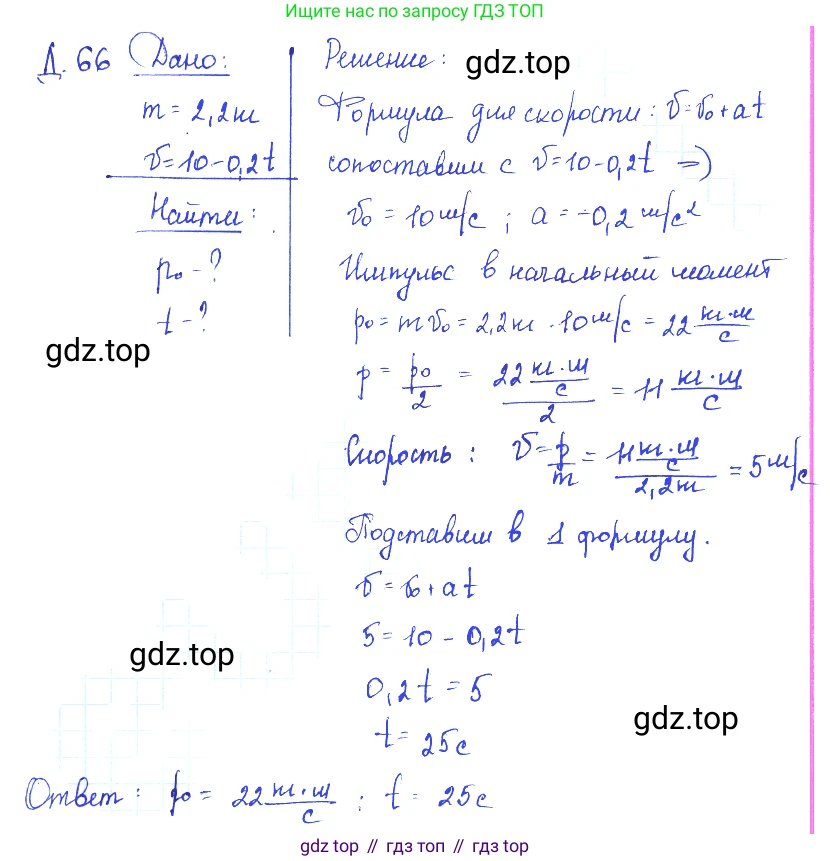 Ищите нас по запросу ГДЗ ТОП
Д. 66 Дано:
m = 2,2 кг
v = 10 - 0,2t
Найти:
p₀ - ?
t - ?
gdz.top
Решение:
gdz.top
Формула для скорости: v = v₀ + at
сопоставим с v = 10 - 0,2t ⇒
v₀ = 10 м/с ; a = -0,2 м/с²
Импульс в начальный момент
p₀ = mv₀ = 2,2 кг · 10 м/с = 22 кг·м/с
p = p₀/2 = 22 кг·м/с / 2 = 11 кг·м/с
Скорость : v = p/m = 11 кг·м/с / 2,2 кг = 5 м/с
Подставим в 1 формулу.
v = v₀ + at
5 = 10 - 0,2t
gdz.top
0,2t = 5
gdz.top
t = 25 с
Ответ : p₀ = 22 кг·м/с ; t = 25 с
gdz.top // гдз топ // гдз.top